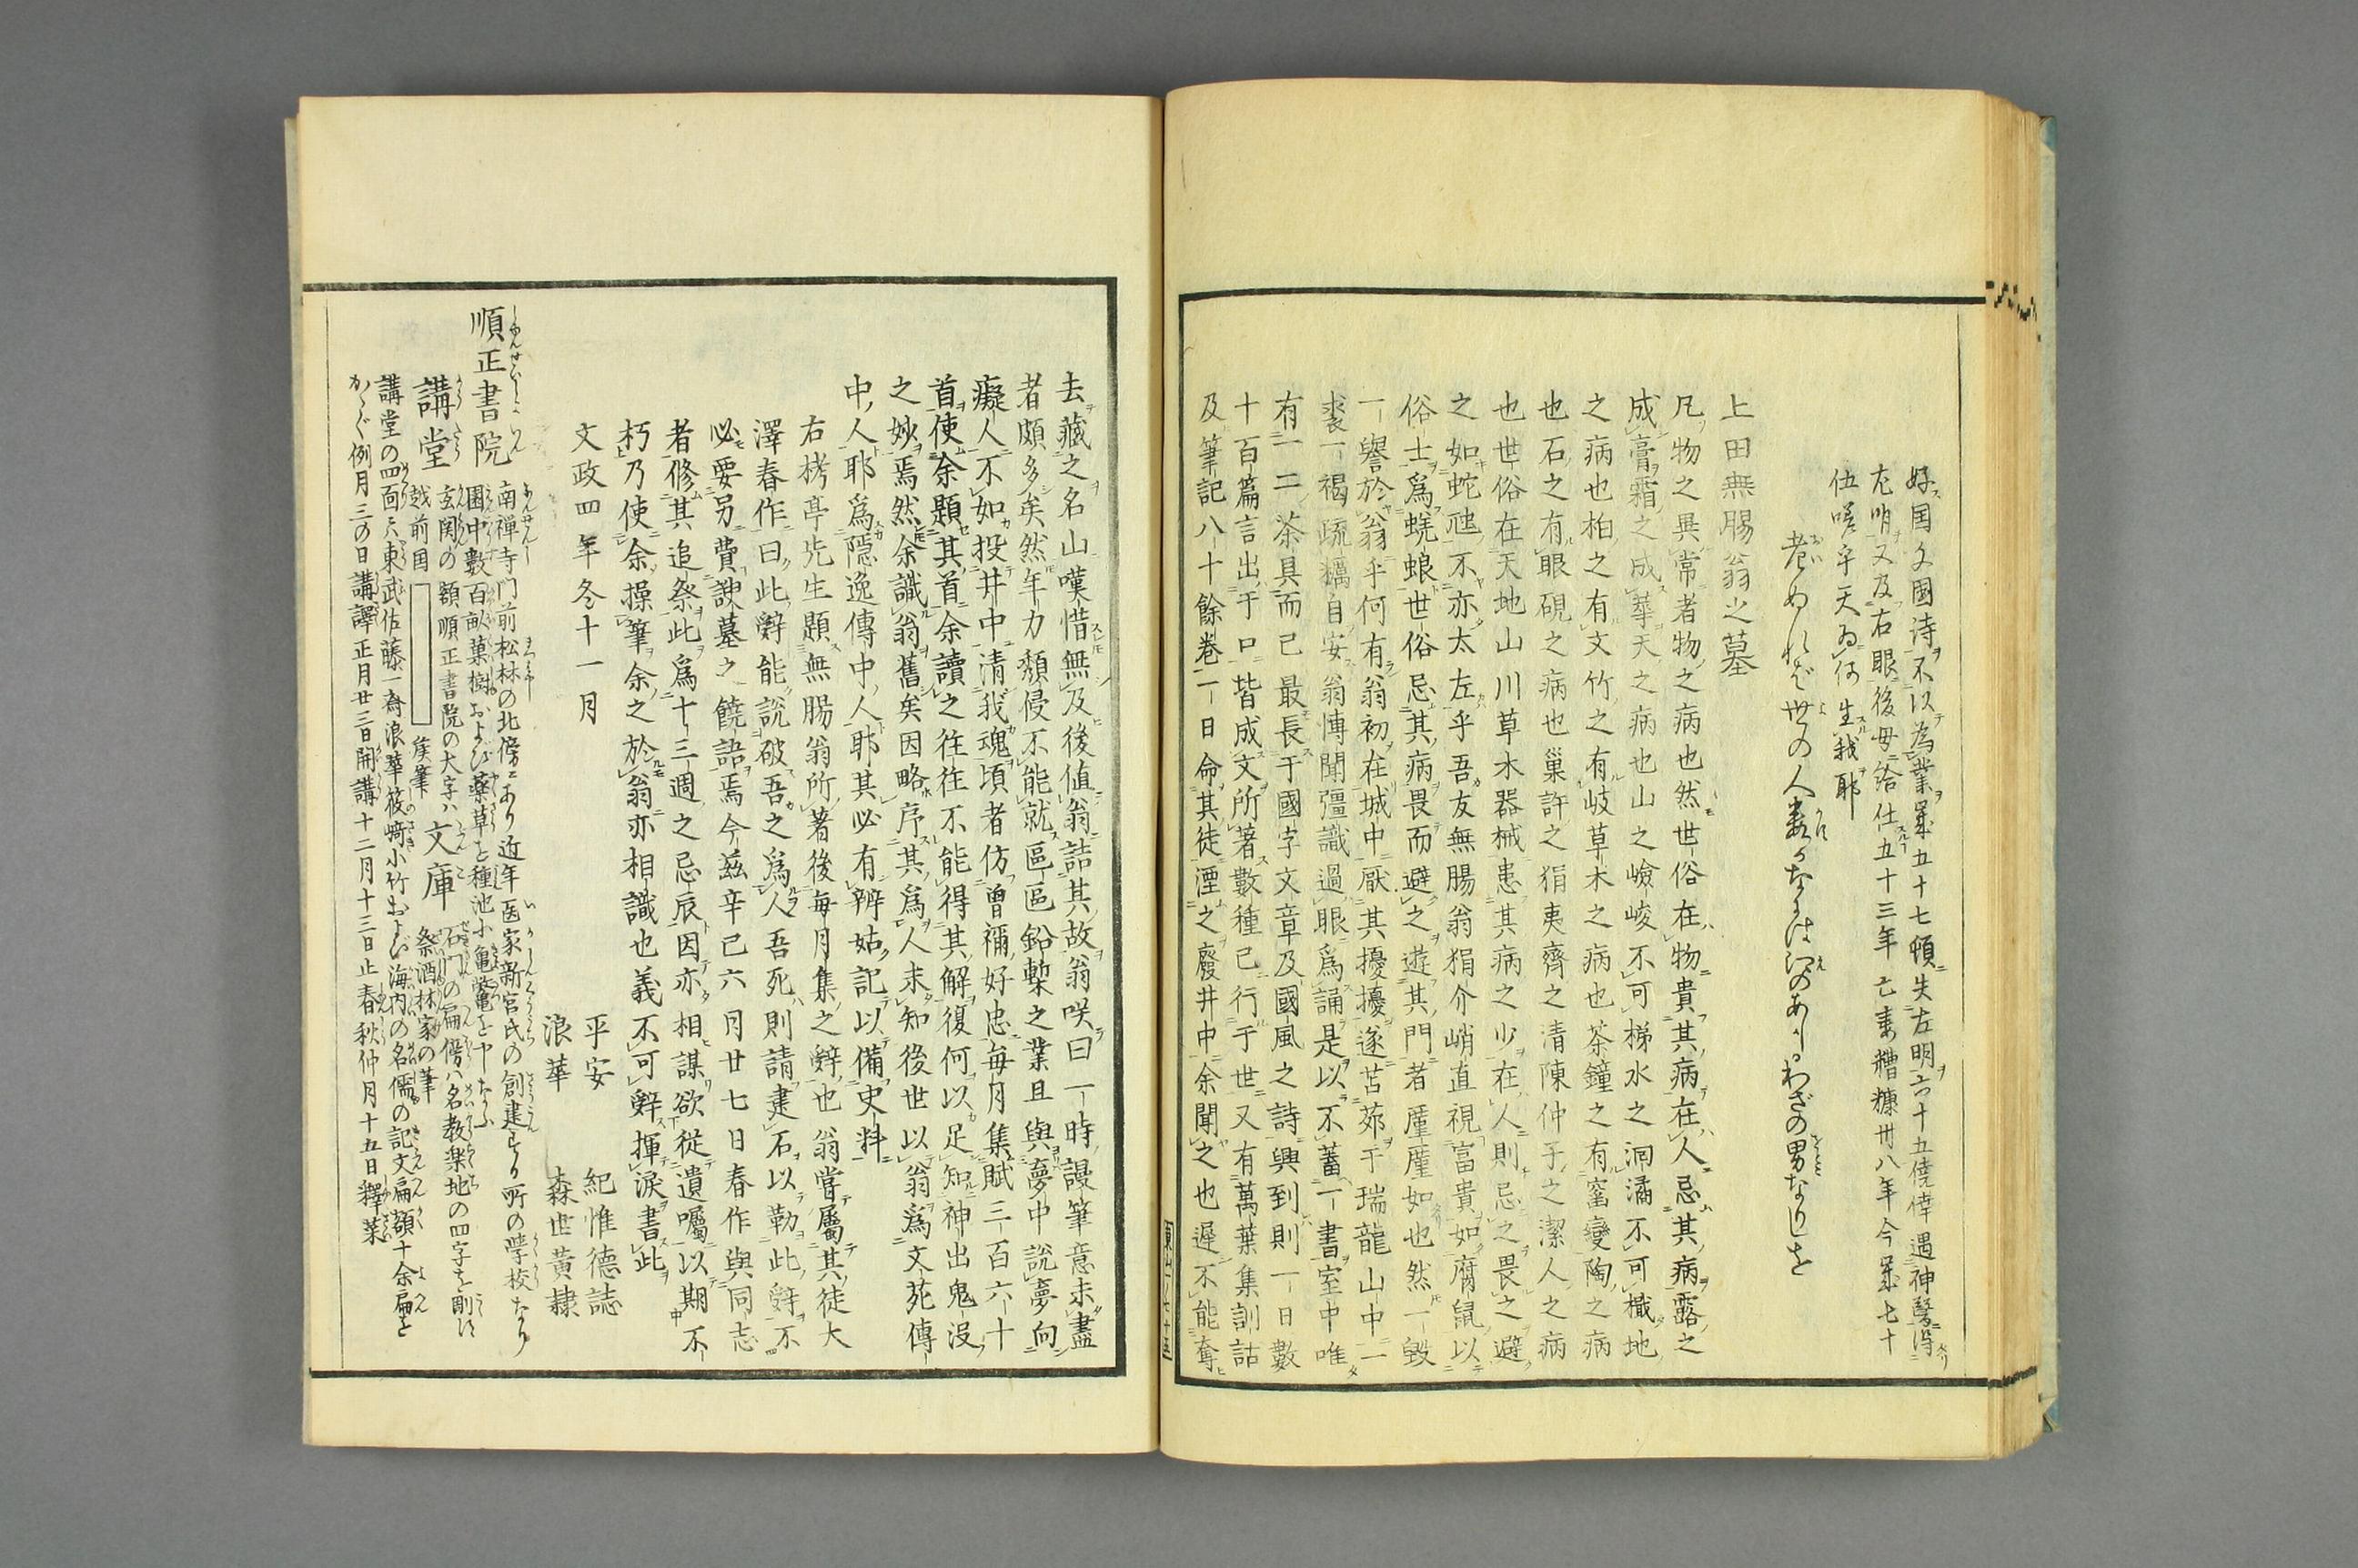 好国文國詩不以為業歳五十七傾失左明六十五僥倖遇神醫得
左明又及右眼後毋給仕五十三年亡妻糟糠卅八年今歳七十
伍嗟乎天為何生我耶
老ぬれば世の人數
わざの男なりしを
上田無腸翁之墓
凡物之異常者物之病也然世俗在物貴其病在人忌其病露之
成膏霜之成華天之病也山之嶮峻不可梯水之洄潏不可檝地
之病也柏之有文竹之有岐草木之病也茶鐘之有窰變陶之病
也石之有眼硯之病也巢許之狷夷齊之清陳仲子之潔人之病
也世俗在天地山川草木器械患其病之少在人則忌之畏之避
之如蛇虺不亦太左乎吾友無腸翁狷介峭直視富貴如腐鼠以
俗士為蜣蜋世俗忌其病畏而避之遊其門者廑廑如也然一毀
一譽於翁乎何有翁初在城中厭其擾擾遂苫茆于瑞龍山中一
裘一褐疏糲自安翁博聞彊識過眼為誦是以不蓄一書室中唯
有一二茶具而已最長于國字文章及國風之詩興到則一日數
十百篇言出于口皆成文所著數種已行于世又有萬葉集訓詁
及筆記八十餘卷一日命其徒湮之廢井中余聞之也遲不能奪
去藏之名山嘆惜無及後値翁詰其故翁咲曰一時謾筆意未盡
者頗多矣然年力頽侵不能就區區鉛槧之業且與夢中說夢向
癡人不如投井中清我魂頃者仿曾禰好忠每月集賦三百六十
首使余題其首余讀之往往不能得其解復何以足知神出鬼沒
之妙焉然余識翁舊矣因略序其為人未知後世以翁為文苑傳
中人耶為隱逸傳中人耶其必有辨姑記以備史料
右栲亭先生題無腸翁所著後每月集之辭也翁嘗屬其徒大
澤春作曰此辭能說破吾之為人吾死則請建石以勒此辭不
必要另費諛墓之饒語焉今茲辛巳六月廿七日春作與同志
者修其追祭此為十三週之忌辰因亦相謀欲從遺囑以期不
朽乃使余操筆余之於翁亦相識也義不可辭揮淚書此
文政四年冬十一月
平安　紀惟德誌
浪華　森世黃隸
順正書院
南禅寺門前松林の北傍にあり近年医家新宮氏の創建する所の学校なり
園中數百畝菓樹および藥草を種池小亀鼈を
講堂
玄関の額順正書院の大字ハ
越前国　矦筆
文庫
石門の扁傍ハ名教楽地の四字を劑に
祭酒林家の筆
講堂の四面に東武佐藤一齋浪華篠崎小竹および海内の名儒の記文扁額十余扁を
かゝぐ例月三の日講譯正月廿三日開講十二月十三日止春秋仲月十五日釋菜